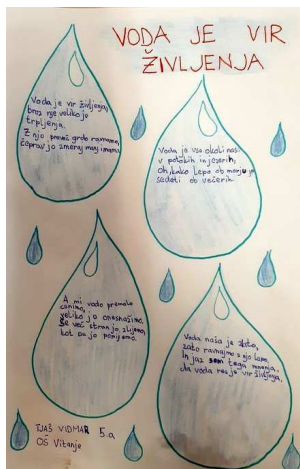 VODA JE VIR
ŽIVLJENJA
Voda je vir življenja,
brez nje veliko je
trpljenja.
Z njo preveč grdo ravnamo,
čeprav jo zmeraj manj imamo.
Voda je vse okoli nas,
v potokih in jezerih,
Oh, kako lepo ob morju je
sedeti ob večerih.
A mi vodo premalo
cenimo,
veliko jo onesnažimo.
Še več stran jo zlijemo,
kot pa jo popijemo.
Voda naša je zlato,
zato ravnajmo z njo lepo.
In jaz sem tega mnenja,
da voda res je vir življenja.
TJAŠ VIDMAR 5.a
OŠ Vitanje